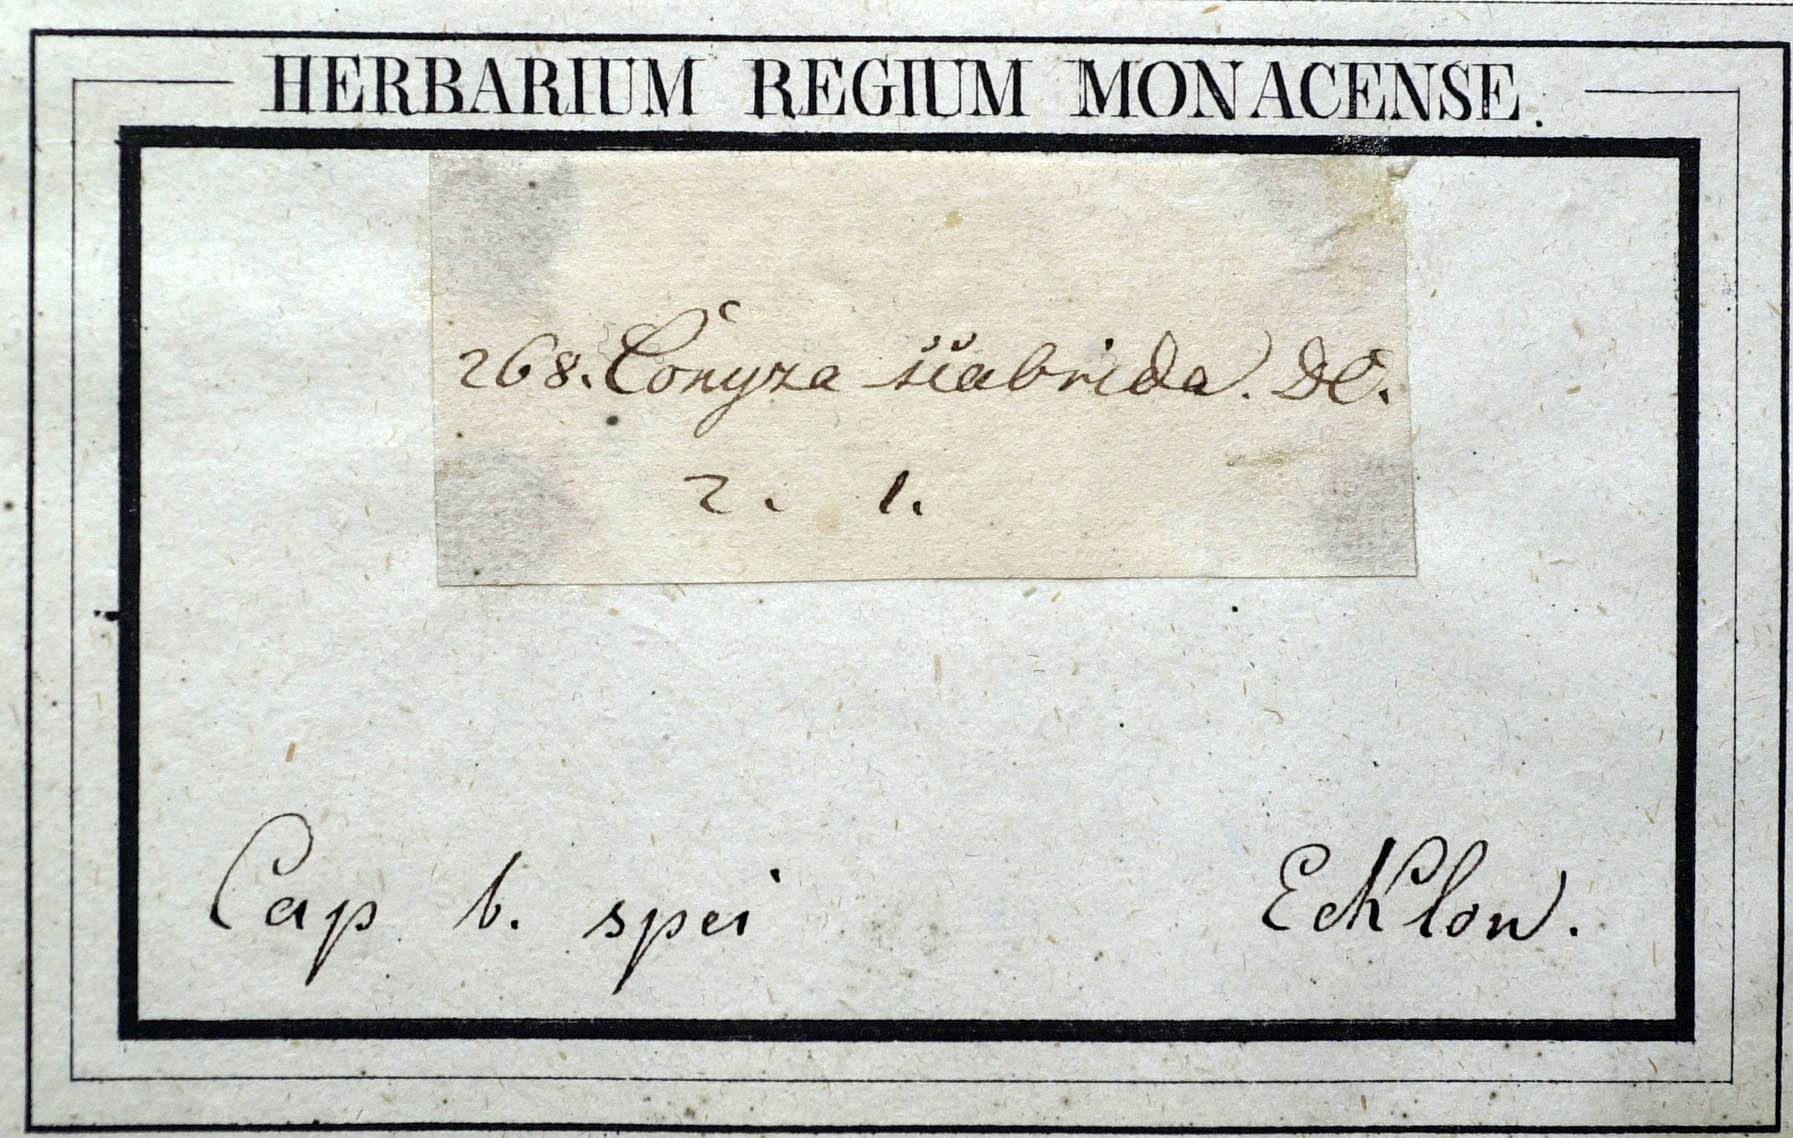 HERBARIUM REGIUM MONACENSE.
268. Conyza scabrida. DC.
2. 1.
Cap b. spei
Ecklon.